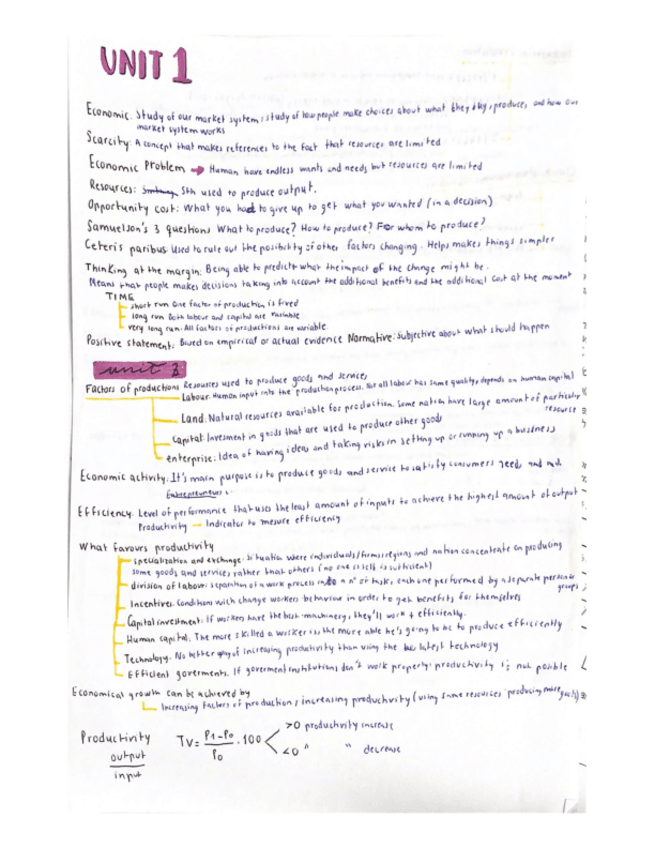 UNIT 1
Economic. Study of our market system; study of how people make choices about what they buy, produce, and how our
market system works
Scarcity: A concept that makes references to the fact that resources are limited
Economic Problem → Human have endless wants and needs but resources are limited
Resources: Sth used to produce output.
Opportunity cost: What you had to give up to get what you wanted (in a decision)
Samuelson's 3 questions What to produce? How to produce? For whom to produce?
Ceteris paribus Used to rule out the posibility of other factors changing. Helps makes things simpler
Thinking at the margin: Being able to predicte what the impact of the change might be.
Means that people makes decisions taking into account the additional benefits and the additional cost at the moment
TIME
short run One factor of production is fixed
long run Both labour and capital are variable
very long run: All factors of productions are variable
Positive statement: Based on empirical or actual evidence Normative: Subjective about what should happen
unit 2
Factors of productions Resources used to produce goods and services
Labour: Human input into the production process. Not all labour has same quality, depends on human capital
Land: Natural resources available for production. Some nation have large amount of particular
resource
Capital: Invesment in goods that are used to produce other goods
enterprise: Idea of having ideas and taking risks in setting up or running up a business
Economic activity: It's main purpose is to produce goods and service to satisfy consumers needs and
Entrepreneurs
Efficiency: Level of performance that uses the least amount of inputs to achieve the highest amount of output
Productivity — Indicator to mesure efficiency
What favours productivity
specialization and exchange: situation where individuals/firms/regions and nation concentrate on producing
some goods and services rather than others (no one is self sufficient)
division of labour: separation of a work process into a nº of tasks, each one performed by a separate person or
groups
Incentives: Conditions wich change workers behaviour in order to get benefits for themselves
Capital investment: If workers have the best machinery, they'll work + efficiently.
Human capital. The more skilled a worker is, the more able he's going to be to produce efficiently
Technology. No better way of increasing productivity than using the latest technology
Efficient goverments. If goverment institutions don't work property productivity is not posible
Economical growth can be achieved by
Increasing factors of production, increasing productivity (using same resources producing more goods)
Productivity TV= P1-P0 / P0 · 100 >0 productivity increase
output / input <0 " " decrease